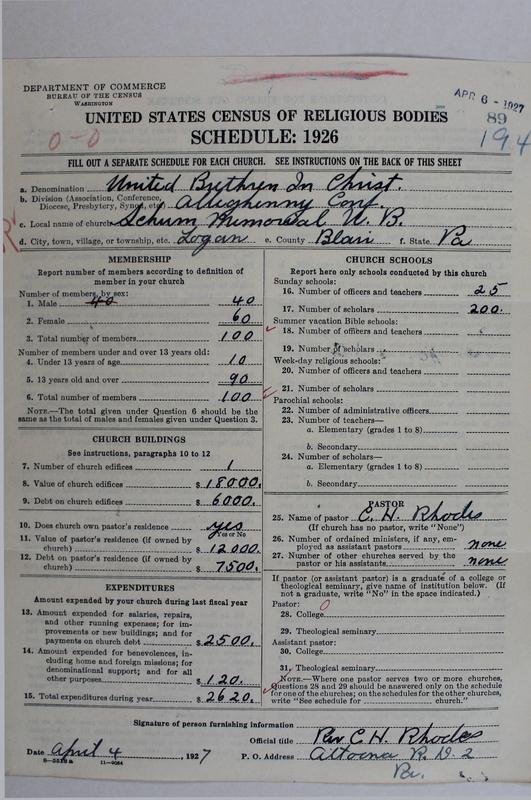 DEPARTMENT OF COMMERCE
BUREAU OF THE CENSUS
WASHINGTON
APR 6 - 1927
89
194
0-0
UNITED STATES CENSUS OF RELIGIOUS BODIES
SCHEDULE: 1926
FILL OUT A SEPARATE SCHEDULE FOR EACH CHURCH. SEE INSTRUCTIONS ON THE BACK OF THIS SHEET
a. Denomination United Brethren In Christ.
b. Division (Association, Conference, Diocese, Presbytery, Synod, etc.) Allegheny Conf.
c. Local name of church Schum Memorial U. B.
d. City, town, village, or township, etc. Logan e. County Blair f. State Pa
MEMBERSHIP
Report number of members according to definition of member in your church
Number of members, by sex:
1. Male 40 40
2. Female 60
3. Total number of members 100
Number of members under and over 13 years old:
4. Under 13 years of age 10
5. 13 years old and over 90
6. Total number of members 100
NOTE.—The total given under Question 6 should be the same as the total of males and females given under Question 3.
CHURCH BUILDINGS
See instructions, paragraphs 10 to 12
7. Number of church edifices 1
8. Value of church edifices $ 18000.
9. Debt on church edifices $ 6000.
10. Does church own pastor's residence yes
Yes or No
11. Value of pastor's residence (if owned by church) $ 12000.
12. Debt on pastor's residence (if owned by church) $ 7500.
EXPENDITURES
Amount expended by your church during last fiscal year
13. Amount expended for salaries, repairs, and other running expenses; for improvements or new buildings; and for payments on church debt $ 2500.
14. Amount expended for benevolences, including home and foreign missions; for denominational support; and for all other purposes $ 120.
15. Total expenditures during year $ 2620.
CHURCH SCHOOLS
Report here only schools conducted by this church
Sunday schools:
16. Number of officers and teachers 25
17. Number of scholars 200.
Summer vacation Bible schools:
18. Number of officers and teachers
19. Number of scholars
Week-day religious schools:
20. Number of officers and teachers
21. Number of scholars
Parochial schools:
22. Number of administrative officers
23. Number of teachers—
a. Elementary (grades 1 to 8)
b. Secondary
24. Number of scholars—
a. Elementary (grades 1 to 8)
b. Secondary
PASTOR
25. Name of pastor C. H. Rhodes
(If church has no pastor, write "None")
26. Number of ordained ministers, if any, employed as assistant pastors none
27. Number of other churches served by the pastor or his assistants none
If pastor (or assistant pastor) is a graduate of a college or theological seminary, give name of institution below. (If not a graduate, write "No" in the space indicated.)
Pastor: 0
28. College
29. Theological seminary
Assistant pastor:
30. College
31. Theological seminary
NOTE.—Where one pastor serves two or more churches, Questions 28 and 29 should be answered only on the schedule for one of the churches; on the schedules for the other churches, write "See schedule for church."
Signature of person furnishing information
Official title Rev C. H. Rhodes
Date April 4, 1927 P. O. Address Altoona R. D. 2
Pa.
11-9064